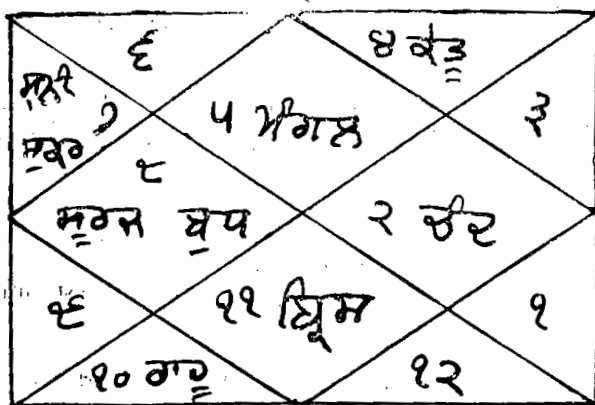 ੬ ੪ ਕੇਤੂ
ਸ਼ਨੀ ੭ ਸ਼ੁਕਰ
੫ ਮੰਗਲ
੩
੮ ਸੂਰਜ ਬੁਧ
੨ ਚੰਦ
੯
੧੧ ਬ੍ਰਿਸ
੧
੧੦ ਰਾਹੂ
੧੨